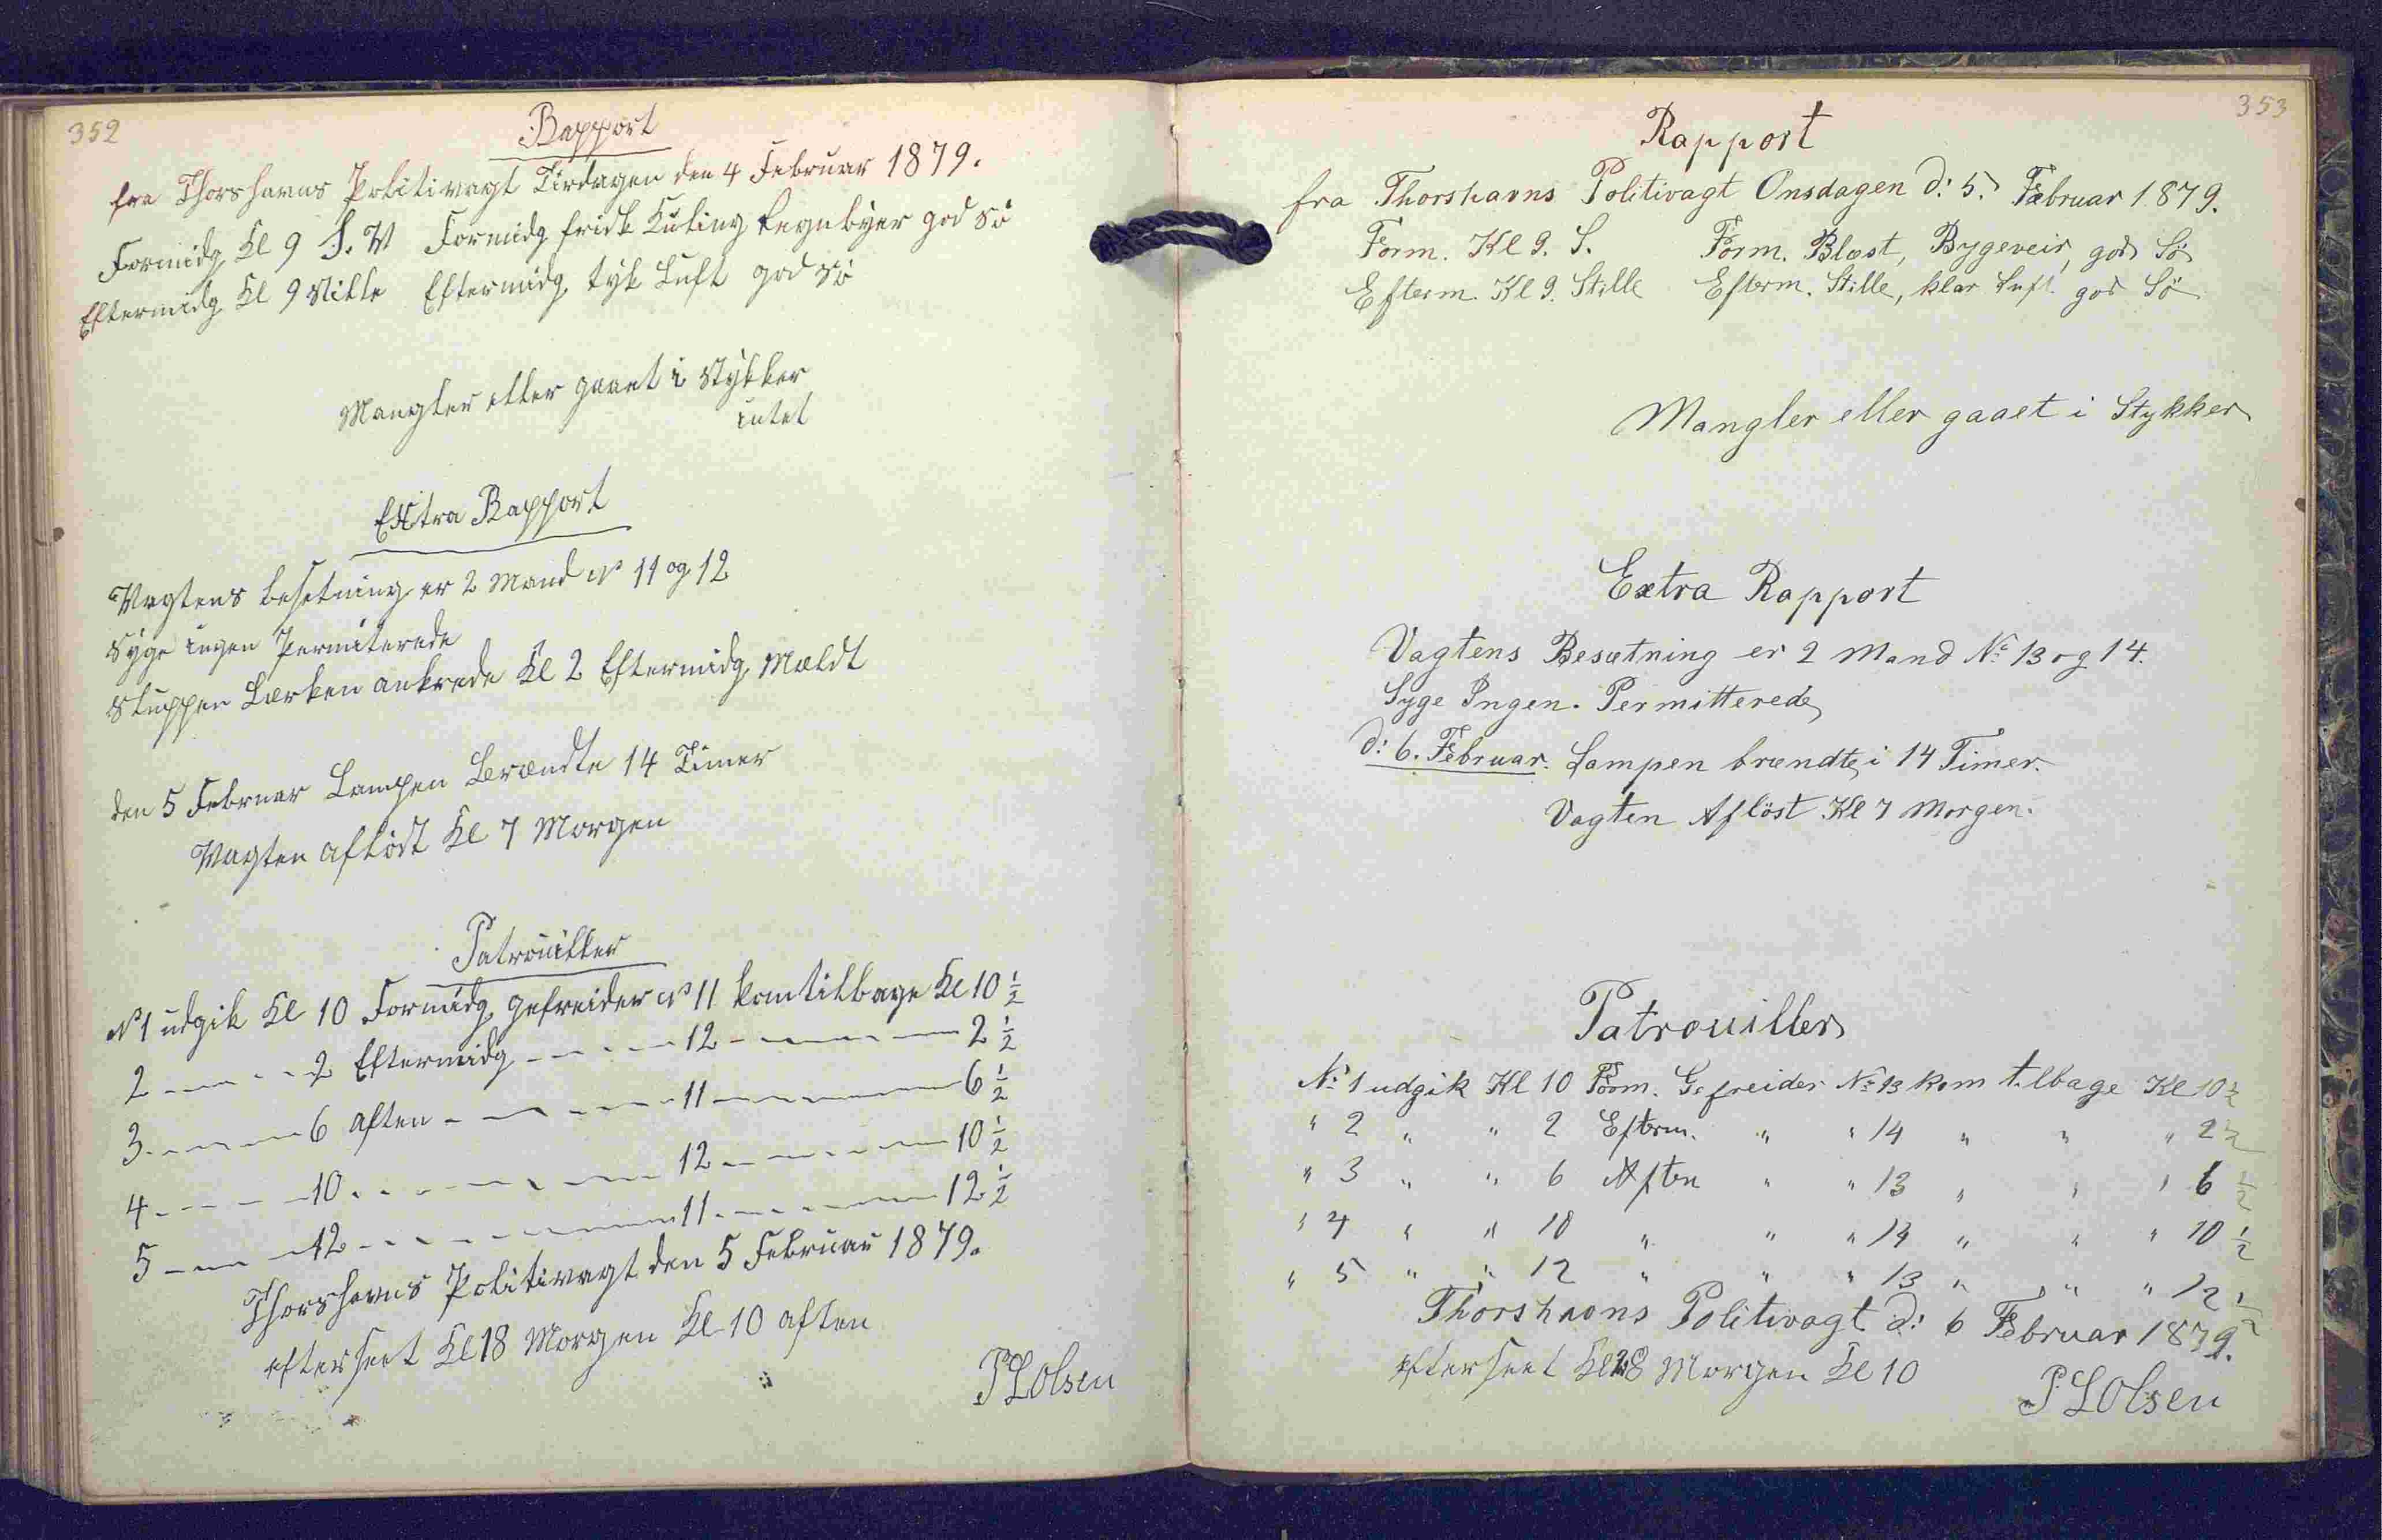 352
Rapport
fra Thorshavns Politivagt Tirdagen den 4 Februar 1879.
Formidg Kl 9 S. V Formidg frisk Kuling regnbyer god Sö
Eftermidg Kl 9 Stille Eftermidg tyk Luft god Sö
Mangler eller gaaet i Stykker
intet
Extra Rapport
Vagtens besetning er 2 Mand No 11 og 12
Syge ingen Permiterede
Sluppen Lærken ankrede Kl 2 Eftermidg Mældt
den 5 Februar Lampen Brændte 14 Timer
Vagten aflöst Kl 7 Morgen
Patrouiller
No 1 udgik Kl 10 Formidg gefreider No 11 kom tilbage Kl 10 1/2
2 — — 2 Eftermidg — — 12 — — 2 1/2
3 — — 6 aften — — 11 — — 6 1/2
4 — — 10 — — 12 — — 10 1/2
5 — — 12 — — 11 — — 12 1/2
Thorshavns Politivagt den 5 Februar 1879.
efterseet Kl 8 Morgen Kl 10 aften
P L Olsen
353
Rapport
fra Thorshavns Politivagt Onsdagen d: 5. Februar 1879.
Form. Kl 9. S. Form. Blæst, Bygeveir, god Sö
Efterm. Kl 9. Stille Efterm. Stille, klar Luft god Sö
Mangler eller gaaet i Stykker
Extra Rapport
Vagtens Besætning er 2 Mand No 13 og 14.
Syge Ingen. Permitterede
d: 6. Februar. Lampen brændte i 14 Timer.
Vagten Aflöst Kl 7 Morgen.
Patrouiller
No 1 udgik Kl 10 Form. Gefreider No 13 kom tilbage Kl 10 1/2
" 2 " " 2 Efterm. " " 14 " " " 2 1/2
" 3 " " 6 Aften " " 13 " " " 6 1/2
" 4 " " 10 " " " 14 " " " 10 1/2
" 5 " " 12 " " " 13 " " " 12 1/2
Thorshavns Politivagt d: 6 Februar 1879.
efterseet Kl 8 Morgen Kl 10
P L Olsen